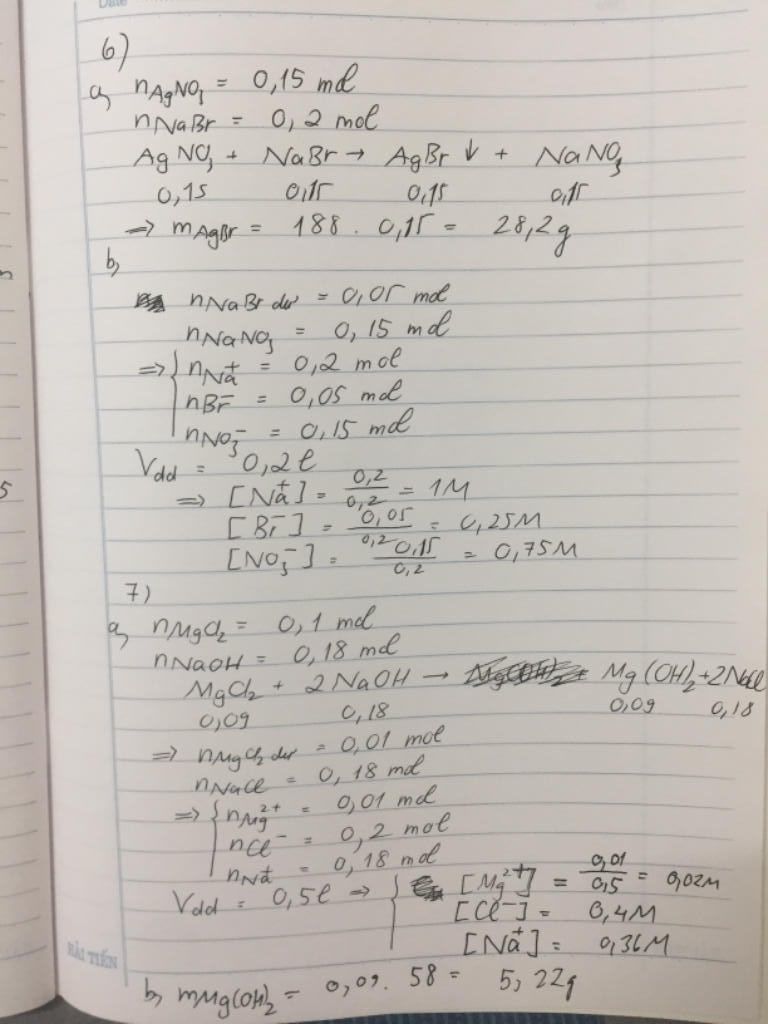 Date
6)
a, nAgNO₃ = 0,15 mol
nNaBr = 0,2 mol
AgNO₃ + NaBr → AgBr ↓ + NaNO₃
0,15 0,15 0,15 0,15
=> mAgBr = 188 . 0,15 = 28,2g
b,
nNaBr dư = 0,05 mol
nNaNO₃ = 0,15 mol
=> { nNa⁺ = 0,2 mol
nBr⁻ = 0,05 mol
nNO₃⁻ = 0,15 mol
Vdd = 0,2l
=> [Na⁺] = 0,2/0,2 = 1M
[Br⁻] = 0,05/0,2 = 0,25M
[NO₃⁻] = 0,15/0,2 = 0,75M
7)
a, nMgCl₂ = 0,1 mol
nNaOH = 0,18 mol
MgCl₂ + 2NaOH → Mg(OH)₂ + 2NaCl
0,09 0,18 0,09 0,18
=> nMgCl₂ dư = 0,01 mol
nNaCl = 0,18 mol
=> { nMg²⁺ = 0,01 mol
nCl⁻ = 0,2 mol
nNa⁺ = 0,18 mol
Vdd = 0,5l => { [Mg²⁺] = 0,01/0,5 = 0,02M
[Cl⁻] = 0,4M
[Na⁺] = 0,36M
HẢI TIẾN
b, mMg(OH)₂ = 0,09. 58 = 5,22g
5